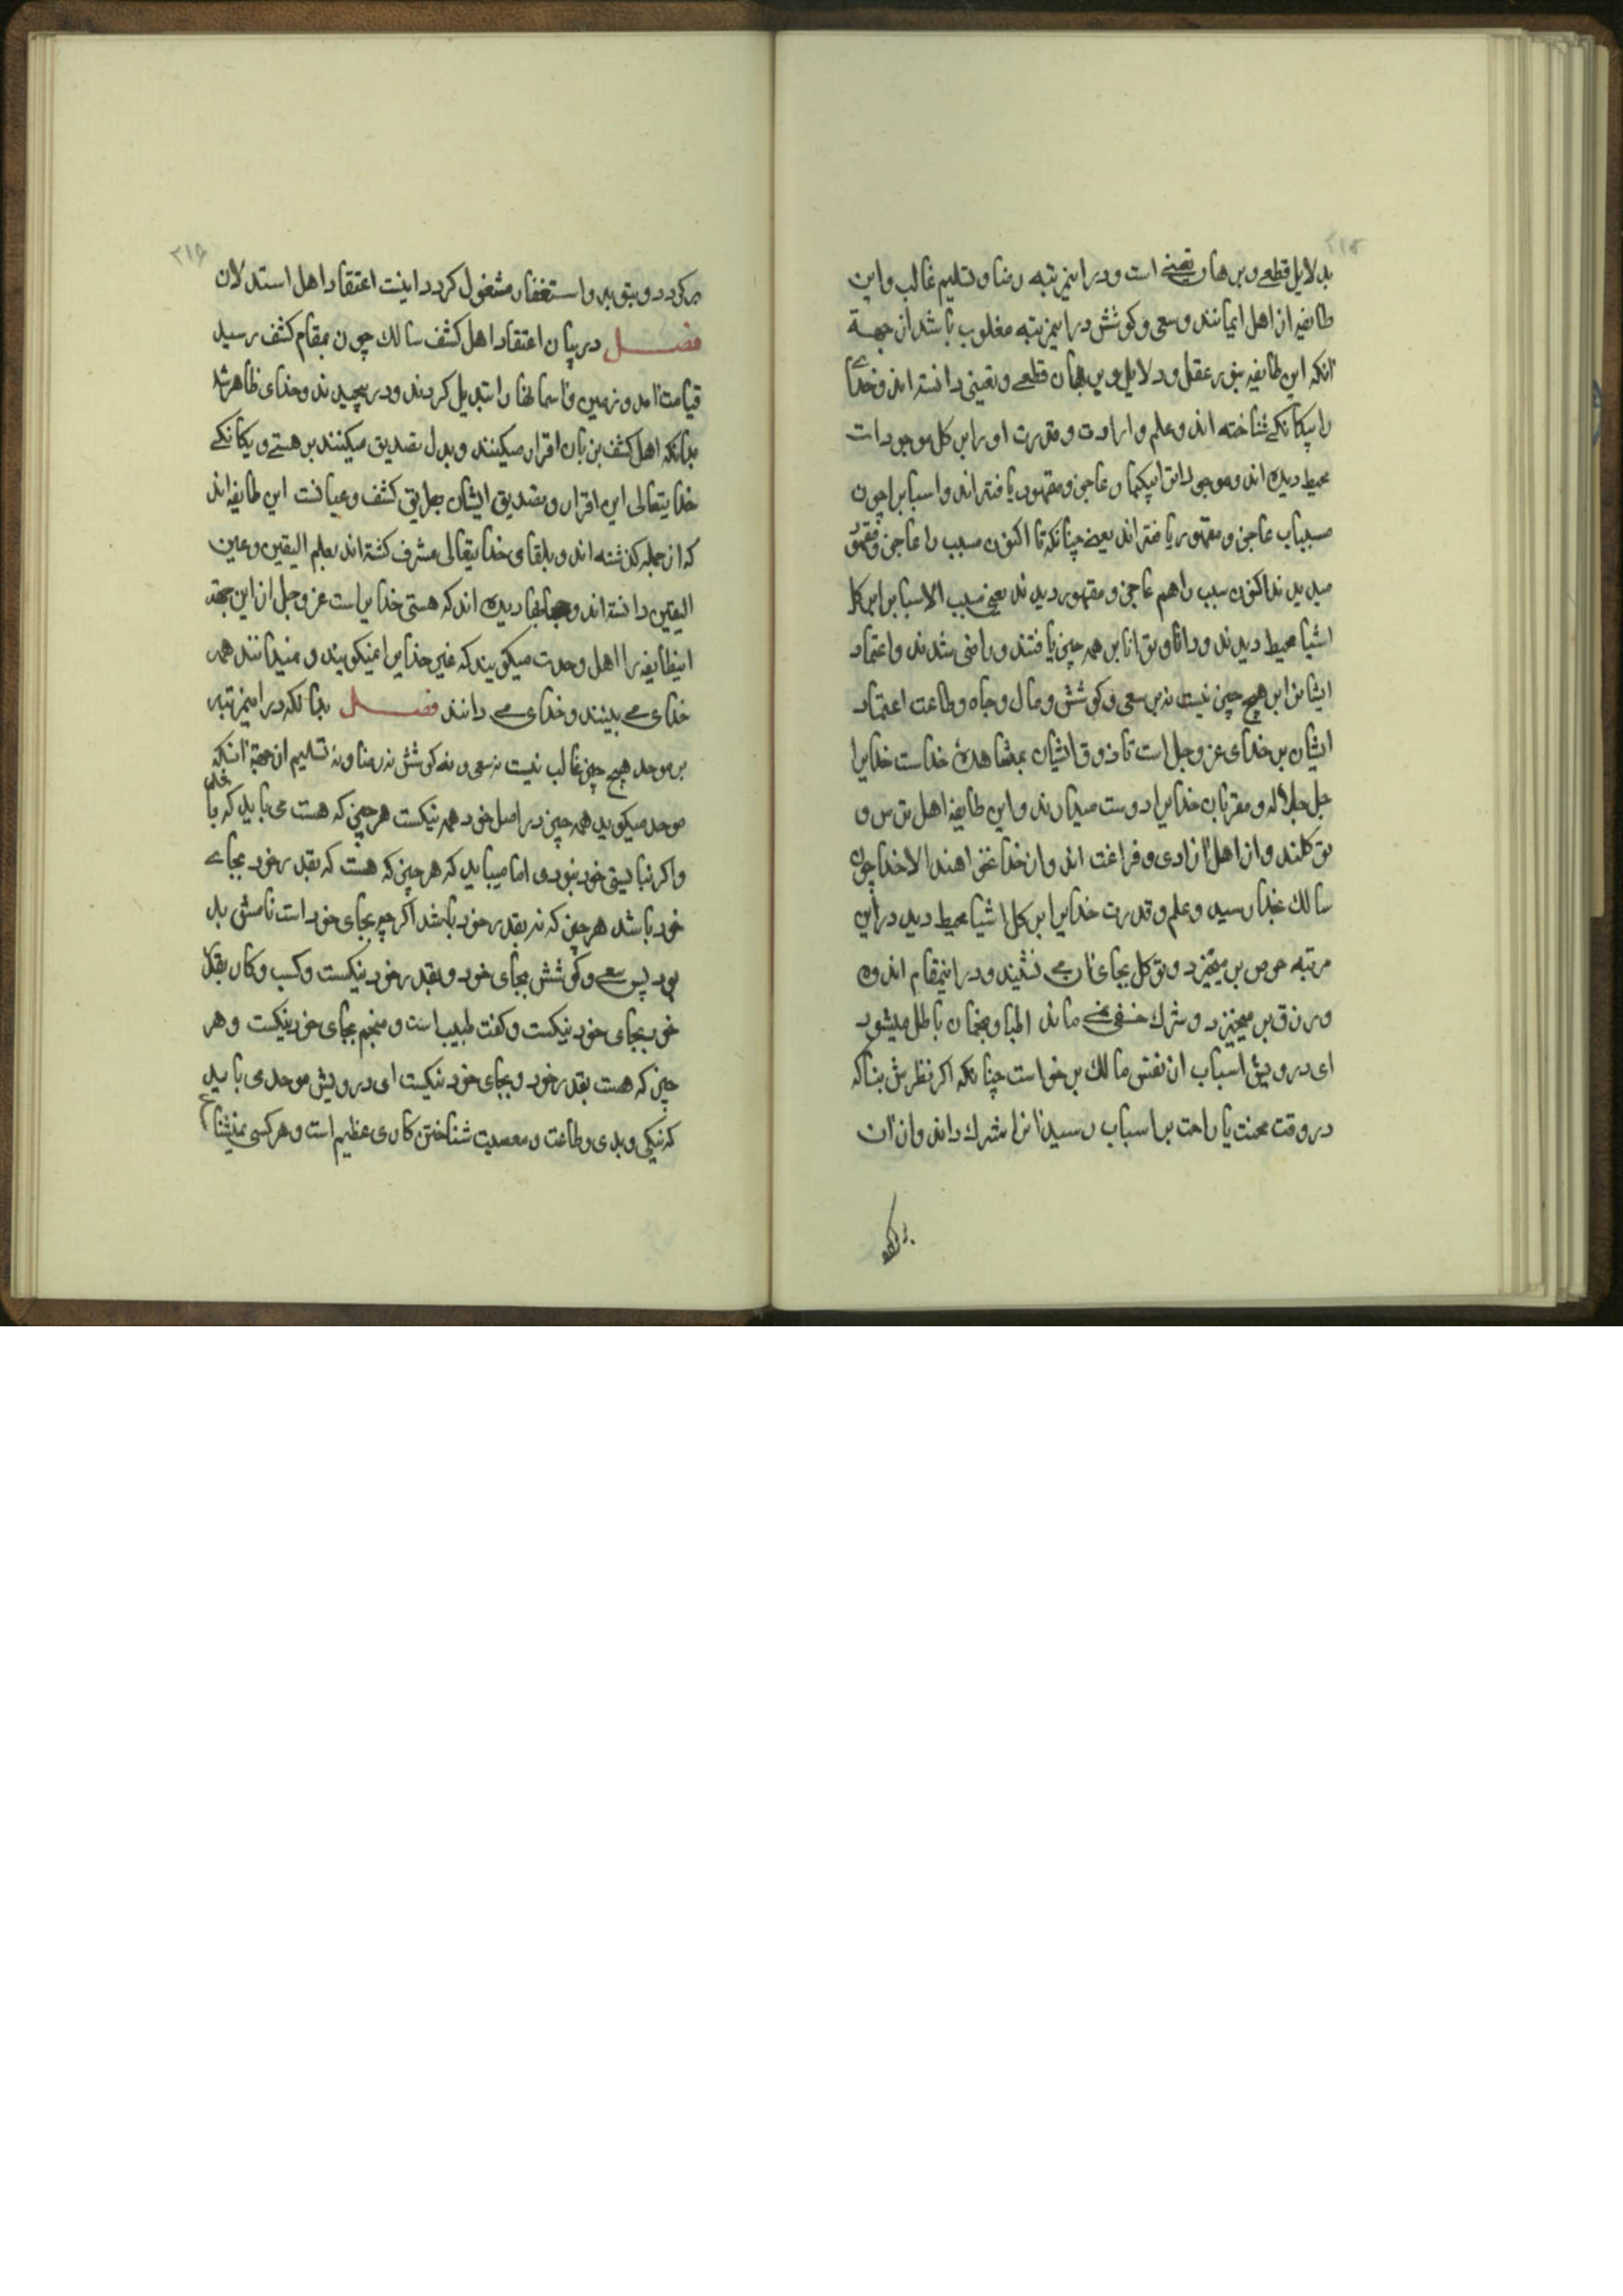 ۲۱۵
بدلایل قطعے و برهان یقینے است و در اینمرتبه رضا و تسلیم غالب و این
طایفه از اهل ایمانند و سعی و کوشش در اینمرتبه مغلوب باشد از جهة
آنکه این طایفه بنور عقل و دلایل و برهان قطعے و یقینی دانسته اند و خدای
را بیکانکے شناخته اند و علم و ارادت و قدرت او را بر کل موجودات
محیط دیده اند و موجودات را بیکبار عاجز و مقهور یافته اند و اسبابرا چون
مسببات عاجز و مقهور یافته اند یعنے چنانکه تا اکنون مسبب را عاجز و مقهور
میدیدند اکنون سبب را هم عاجز و مقهور دیدند یعنے مسبب الاسبابرا بر کل
اشیا محیط دیدند و دانا و توانا بر همه چیز یافتند و راضی شدند و اعتماد
ایشانرا بر هیچ چیز نیست نه بر سعی و کوشش و مال و جاه و طاعت اعتماد
ایشان بر خدای عز و جل است تا ذوق ایشان بمشاهدۀ خداست خدایرا
جل جلاله و مقربان خدایرا دوست میدارند و این طایفه اهل ترس و
توکلند و از اهل آزادی و فراغت اند و از خدا نخواهند الا خدا چون
سالک بخدا رسید و علم و قدرت خدایرا بر کل اشیا محیط دید در این
مرتبه حرص بر میخیزد و توکل بجای آن مے نشیند و در اینمقام اندوه
و رزق بر میخیزد و شرک خفی نمے ماند اطبا و منجمان باطل میشود
ای درویش اسباب از نفس مالک بر خواست چنانکه اکر نظرش بناکه
در وقت محنت یا راحت بر اسباب رسید آنرا شرک داند و از آن
۲۱۶
بر کردد و بتوبه و استغفار مشغول کردد اینست اعتقاد اهل استدلال
فصل در بیان اعتقاد اهل کشف سالک چون بمقام کشف رسید
قیامت آمد و زمین و آسمانها را تبدیل کردند و در پیچیدند و خدای ظاهر شد
بدانکه اهل کشف بزبان اقرار میکنند و بدل تصدیق میکنند بر هستے و یکانکے
خدایتعالی این اقرار و تصدیق ایشان بطریق کشف و عیانست این طایفه اند
که از جمله کذشته اند و بلقای خدایتعالی مشرف کشته اند بعلم الیقین و عین
الیقین دانسته اند و دیده اند که هستی خدایراست عز و جل از این جهة
اینطایفه را اهل وحدت میکویند که غیر خدایرا نمیکویند و نمیدانند همه
خدای مے بینند و خدای مے دانند فصل بدانکه در اینمرتبه
بر موحد هیچ چیز غالب نیست نه سعی و نه کوشش نه رضا و نه تسلیم از جهة آنکه
موحد میکوید همه چیز در اصل خود همه نیکست هر چیز که هست می باید که باشد
و اکر نبایستی خود نبودی اما میباید که هر چیز که هست که بقدر خود بجاے
خود باشد هر چیز که نه بقدر خود باشد اکر چه بجای خود است نامش بد
بود پس سعے و کوشش بجای خود و بقدر خود نیکست و کسب و کار بقدر
خود بجای خود نیکست و کفت طبیب است و منجم بجای خود نیکست و هر
چیز که هست بقدر خود و بجای خود نیکست ای درویش موحد می باید
که نیکی و بدی و طاعت و معصیت شناختن کاری عظیم است و هر کسی نمیشناسد